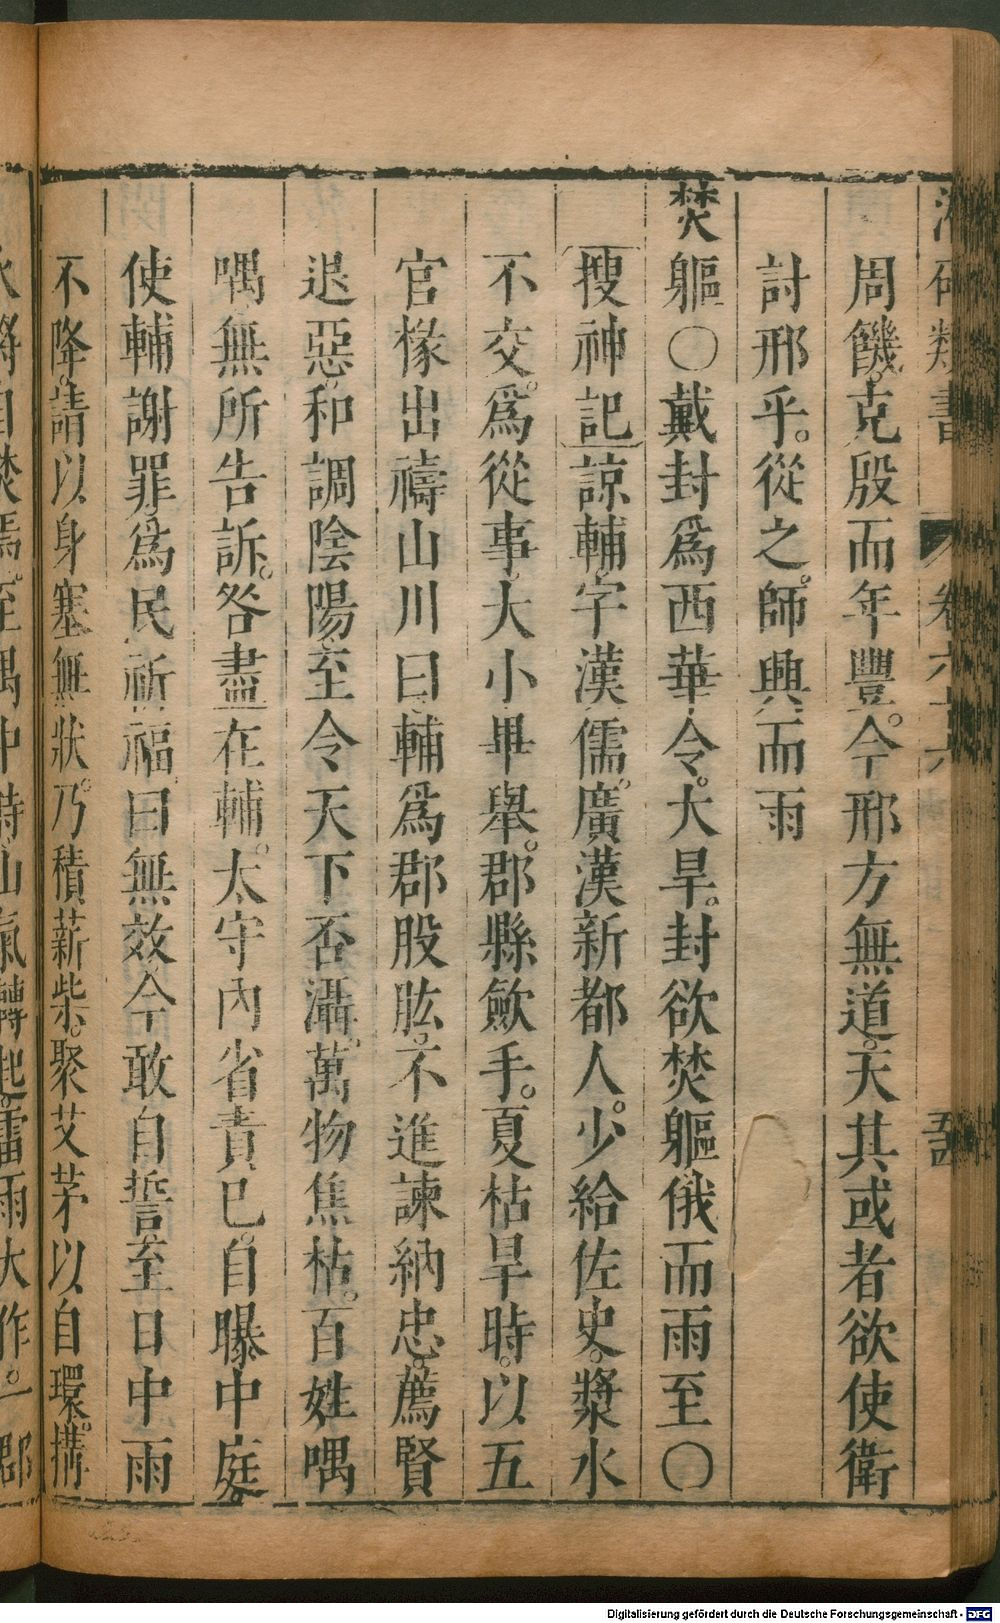 周饑。克殷而年豐。今邢方無道。天其或者欲使衛
討邢乎。從之。師興而雨
焚軀○戴封爲西華令。大旱。封欲焚軀俄而雨至○
搜神記諒輔。字漢儒。廣漢新都人。少給佐史。漿水
不交。爲從事。大小畢舉。郡縣歛手。夏枯旱時。以五
官椽出禱山川曰。輔爲郡股肱。不進諫納忠。薦賢
退惡。和調陰陽。至令天下否滆。萬物焦枯。百姓喁
喁無所告訴。咎盡在輔。太守內省責己。自曝中庭。
使輔謝罪。爲民祈福。曰無效。今敢自誓。至日中雨
不降。請以身塞無狀。乃積薪柴。聚艾茅以自環。搆
火將自焚焉。至禺中時。山氣轉起。雷雨大作。一郡
Digitalisierung gefördert durch die Deutsche Forschungsgemeinschaft - DFG